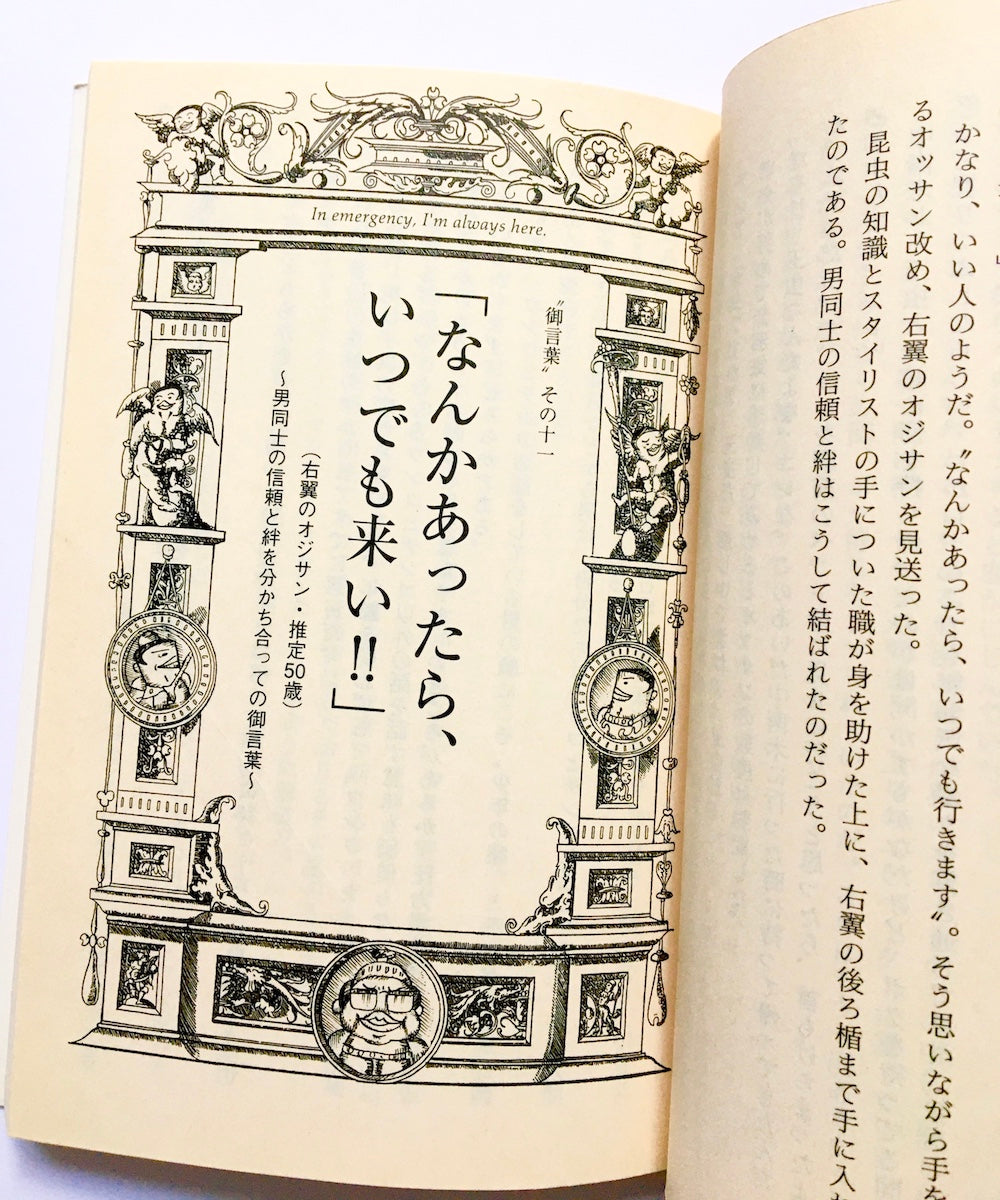 かなり、いい人のようだ。〝なんかあったら、いつでも行きます〟。そう思いながら手を
るオッサン改め、右翼のオジサンを見送った。
昆虫の知識とスタイリストの手についた職が身を助けた上に、右翼の後ろ楯まで手に入
たのである。男同士の信頼と絆はこうして結ばれたのだった。
In emergency, I'm always here.
〝御言葉〟その十一
「なんかあったら、
いつでも来い!!」
（右翼のオジサン・推定50歳）
～男同士の信頼と絆を分かち合っての御言葉～